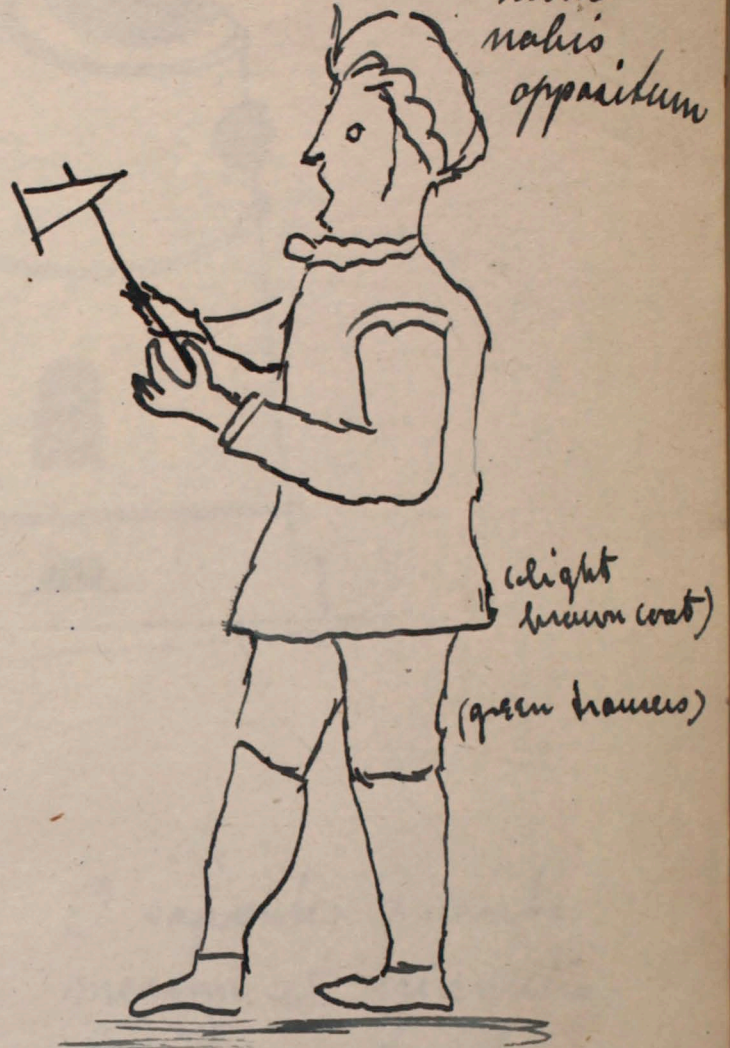 nobis
oppositum
(light
brown coat)
(green trousers)